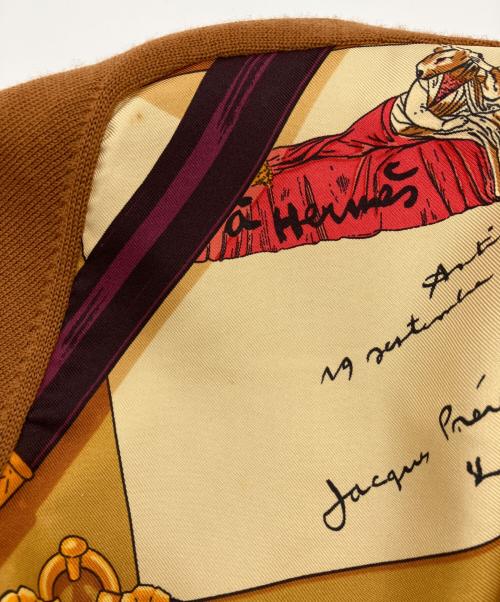 à Hermès
Anti
19 septembre
Jacques Pré